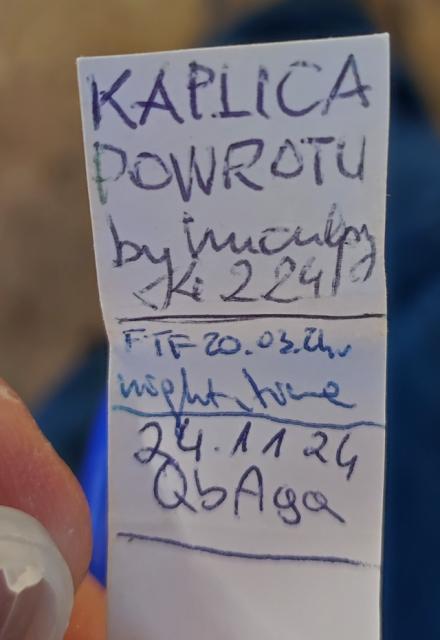 KAPLICA
POWROTU
by
224
FTF 20.03.24r
night_time
24.11 24
QbAga